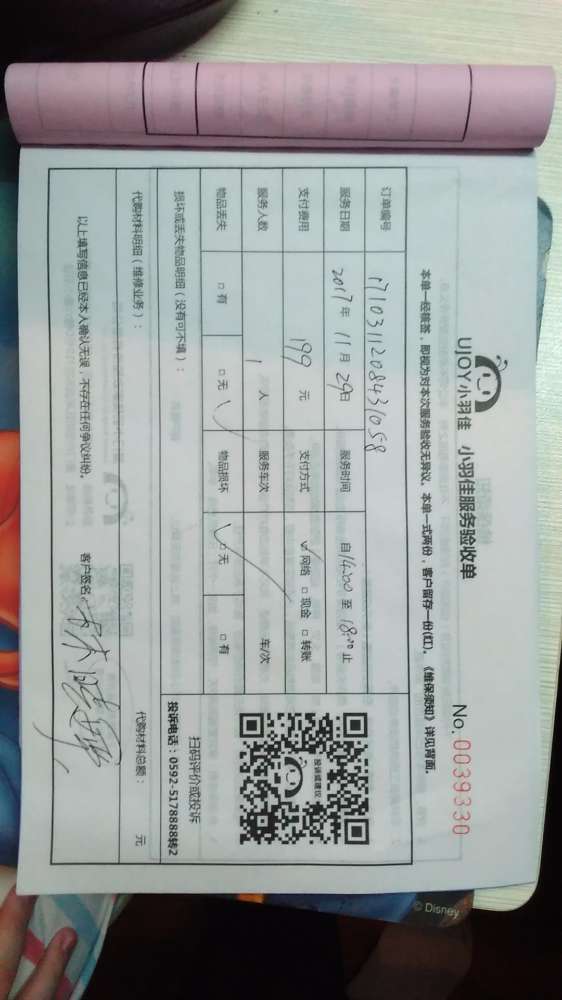 UJOY小羽佳 小羽佳服务验收单
No. 0039330
本单一经核签，即视为对本次服务验收无异议。本单一式两份，客户留存一份(红)。《维保须知》详见背面.
订单编号 1710311208431058
服务日期 2017年 11月 29日 服务时间 自14:00 至 18:00 止
支付费用 199 元 支付方式 ☑网络 □现金 □转账
服务人数 1 人 服务车次 车/次
物品丢失 □有 □无 ✓ 物品损坏 ☑无 □有
投诉或建议
扫码评价或投诉
投诉电话：0592-5178888转2
损坏或丢失物品明细（没有可不填）：
代购材料明细（维修业务）： 代购材料总额： 元
以上填写信息已经本人确认无误，不存在任何争议纠纷。 客户签名：
© Disney